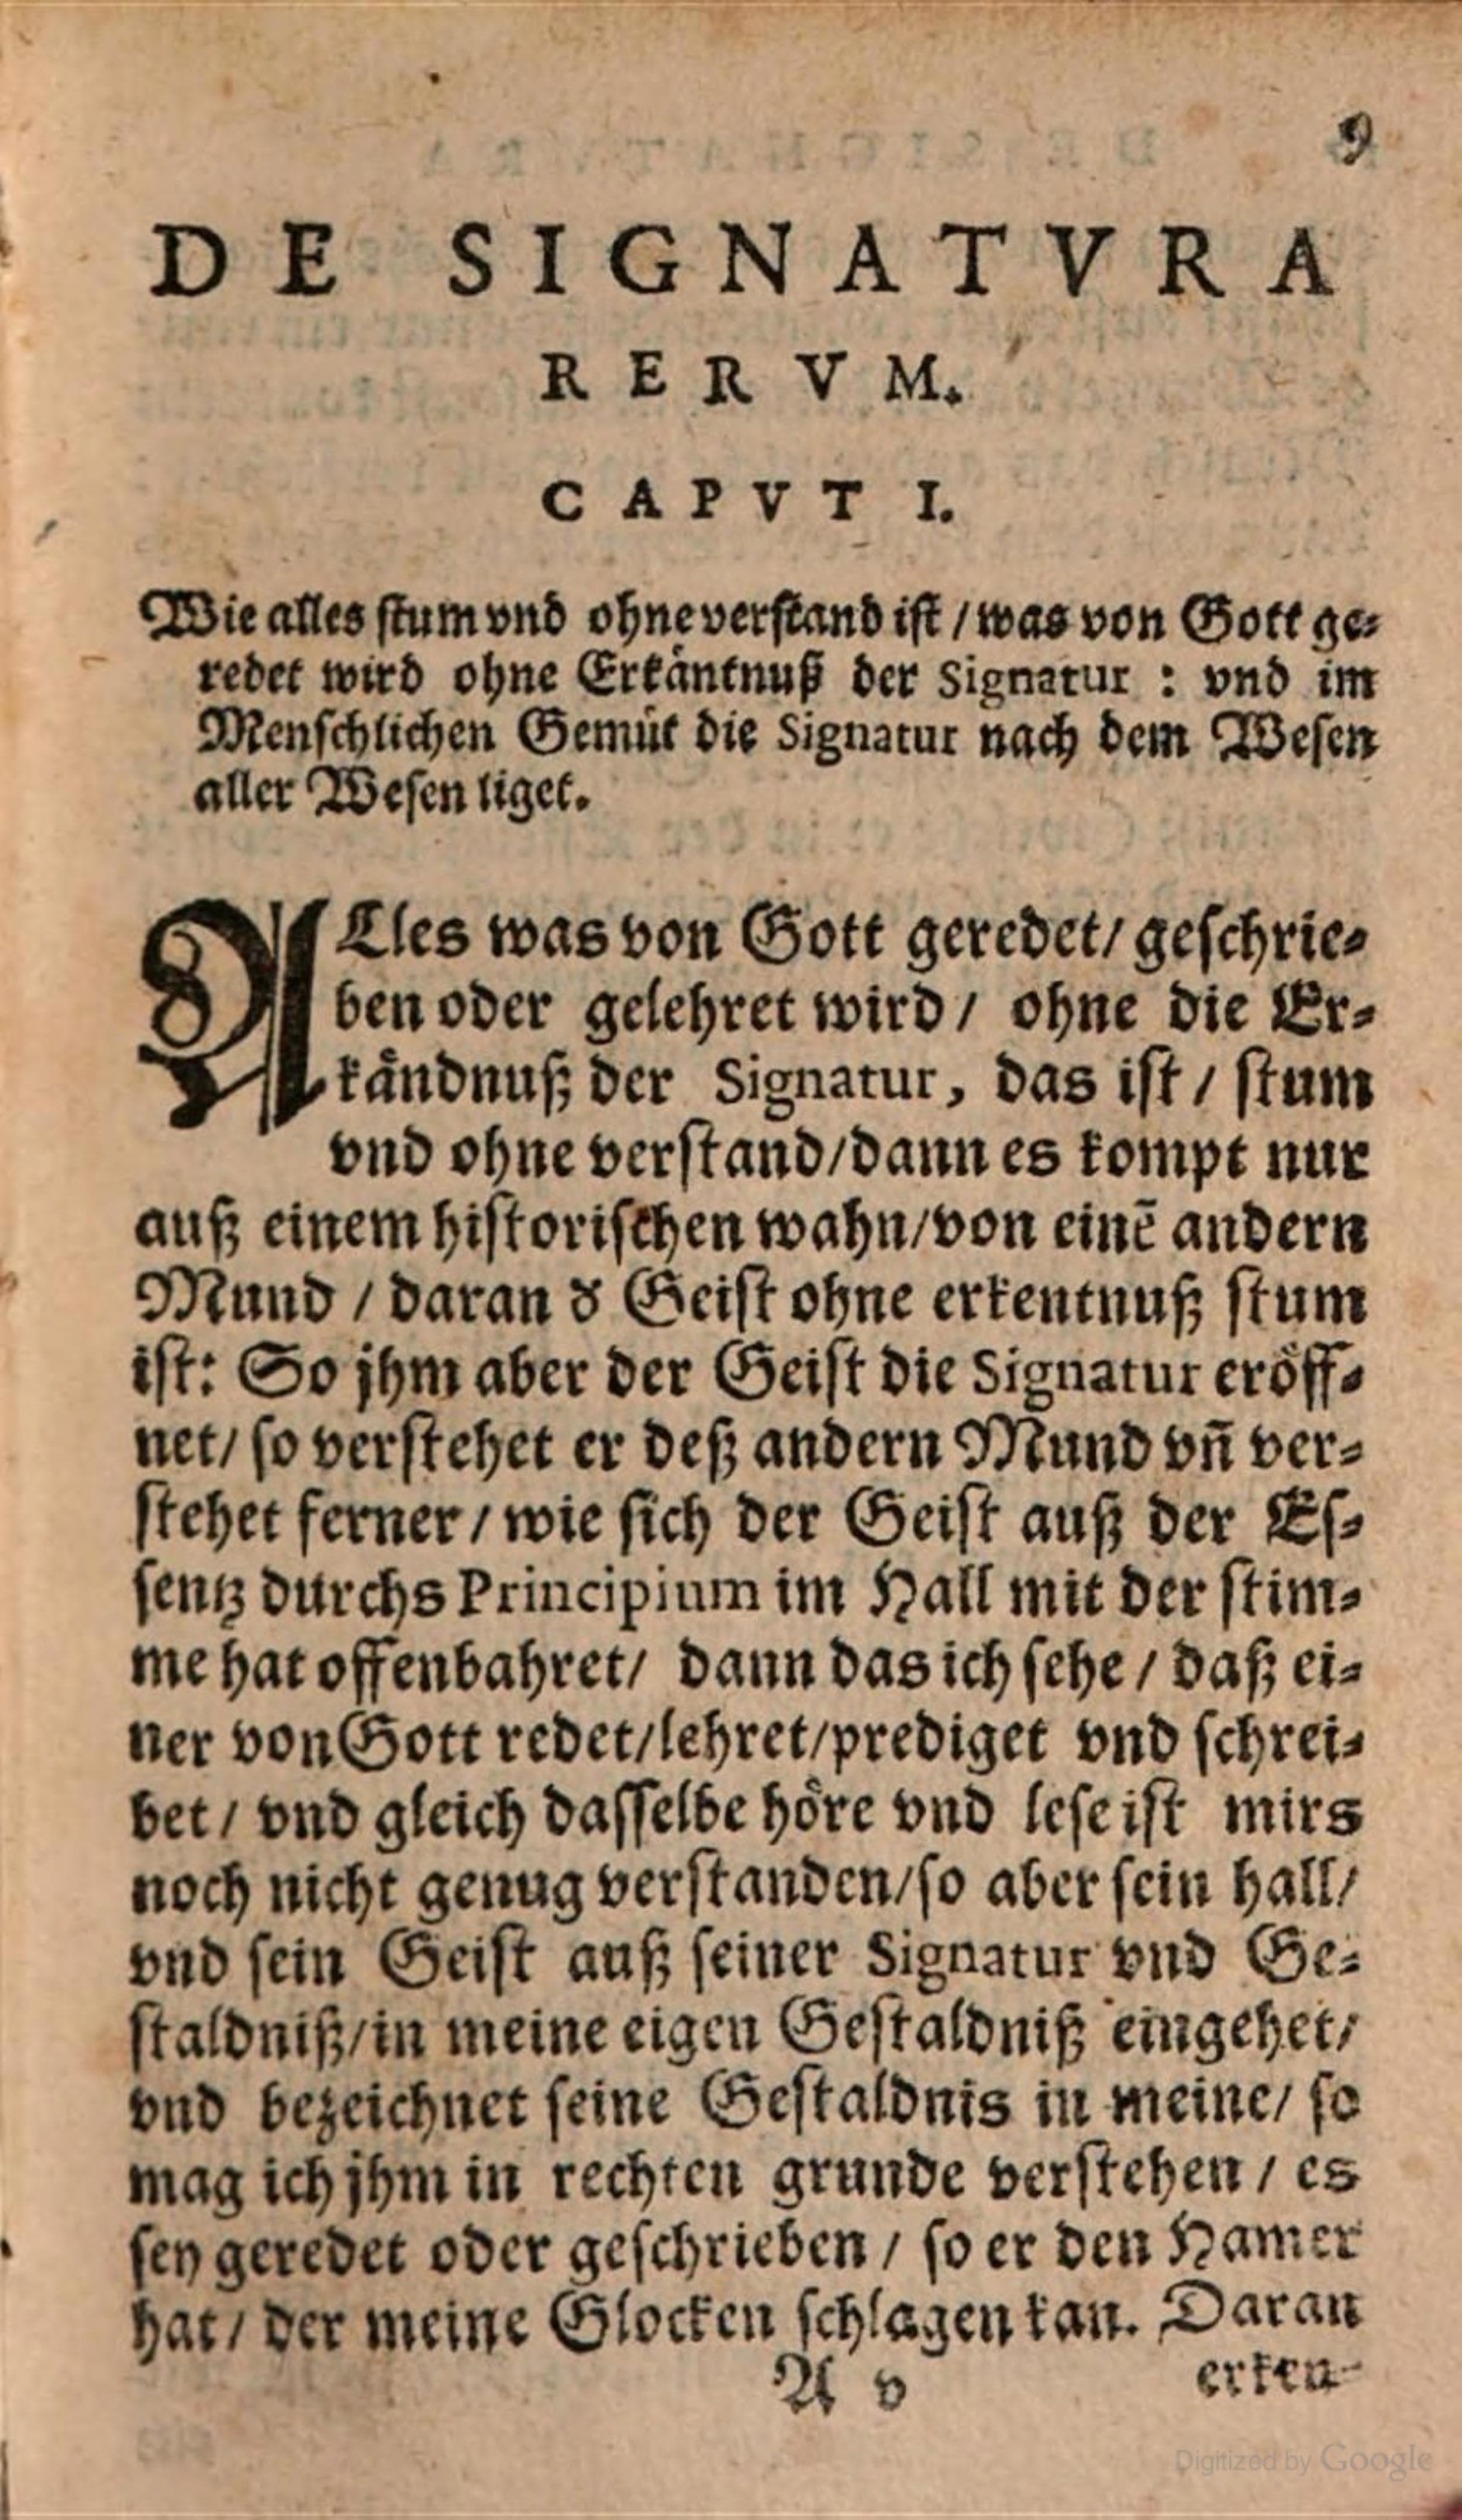 9
DE SIGNATVRA
RERVM.
CAPVT I.
Wie alles stum vnd ohne verstand ist / was von Gott ge-
redet wird ohne Erkäntnuß der Signatur : vnd im
Menschlichen Gemüt die Signatur nach dem Wesen
aller Wesen liget.
ALles was von Gott geredet / geschrie-
ben oder gelehret wird / ohne die Er-
kändnuß der Signatur, das ist / stum
vnd ohne verstand / dann es kompt nur
auß einem historischen wahn / von einē andern
Mund / daran d' Geist ohne erkentnuß stum
ist: So jhm aber der Geist die Signatur eröff-
net / so verstehet er deß andern Mund vn̄ ver-
stehet ferner / wie sich der Geist auß der Es-
sentz durchs Principium im Hall mit der stim-
me hat offenbahret / dann das ich sehe / daß ei-
ner von Gott redet / lehret / prediget vnd schrei-
bet / vnd gleich dasselbe höre vnd lese ist mirs
noch nicht genug verstanden / so aber sein hall /
vnd sein Geist auß seiner Signatur vnd Ge-
staldniß / in meine eigen Gestaldniß eingehet /
vnd bezeichnet seine Gestaldnis in meine / so
mag ich jhm in rechten grunde verstehen / es
sey geredet oder geschrieben / so er den Hamer
hat / der meine Glocken schlagen kan. Daran
A v erken-
Digitized by Google